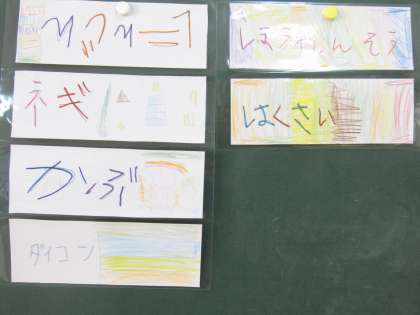 ネギ
かぶ
ダイコン
ほうれんそう
はくさい